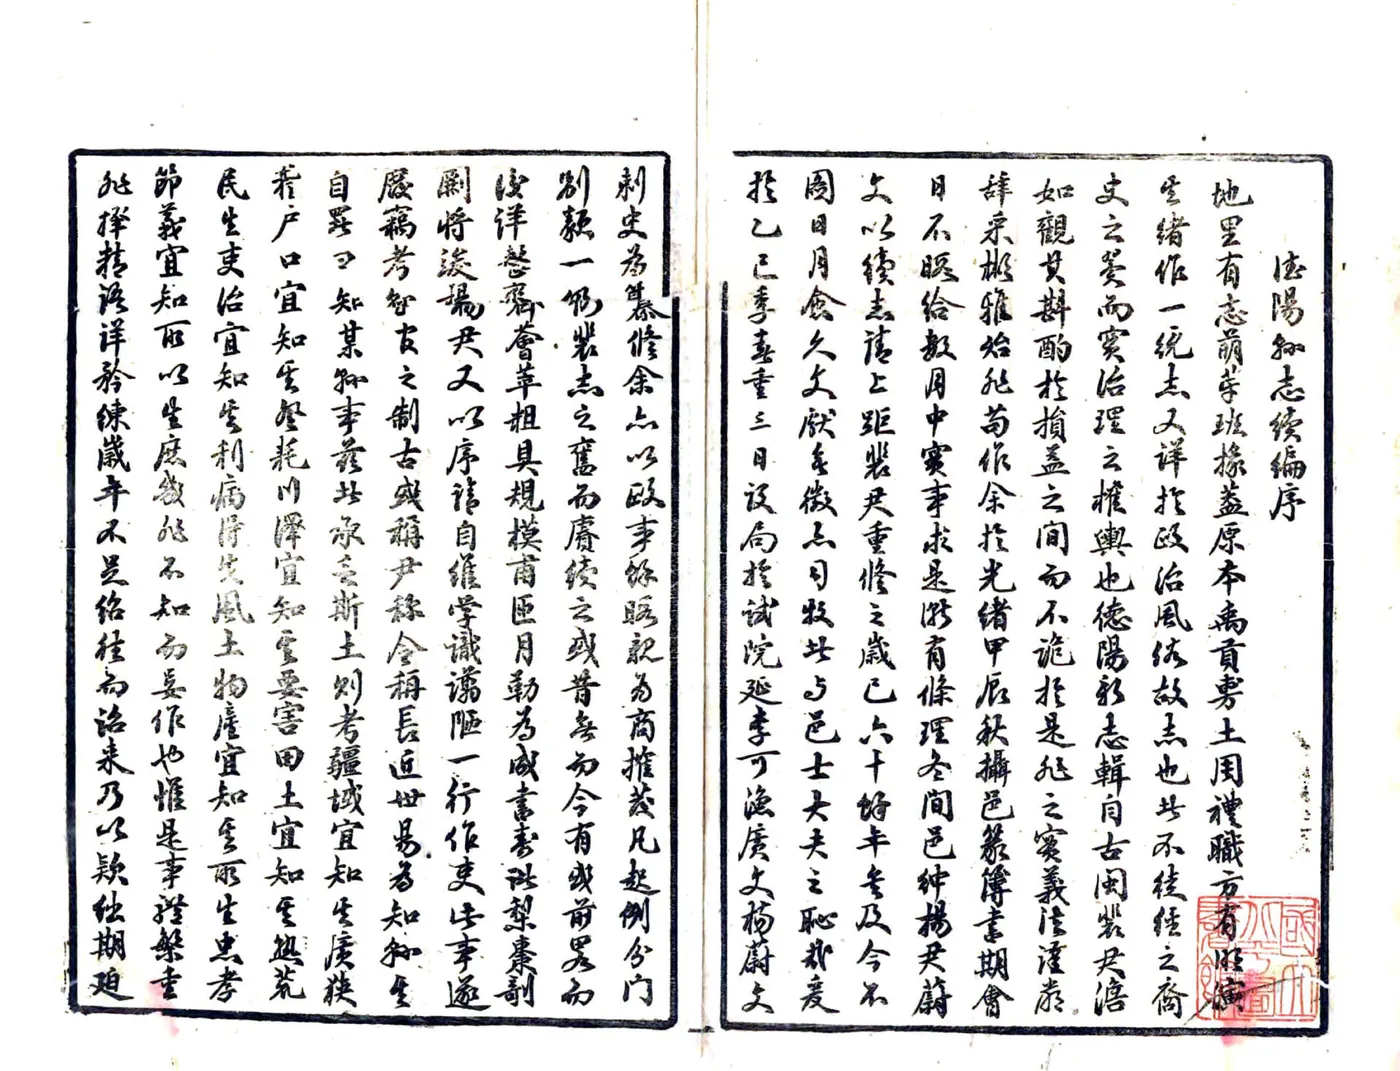 德陽縣志續編序
地里有志萌芽班掾蓋原本禹貢尃土周禮職方有明演
其緒作一統志又詳於政治風俗故志也此不徒經之裔
史之委而實治理之權輿也德陽新志輯自古閩裴尹淯
如觀其斟酌於損益之間而不詭於是非之實義法謹嚴
辭采彬雅殆非苟作余於光緒甲辰秋攝邑篆簿書期會
日不暇給數月中實事求是漸有條理冬間邑紳楊尹蔚
文以續志請上距裴尹重修之歲已六十餘年矣及今不
圖日月愈久文獻無徵亦司牧此與邑士大夫之恥哉爰
於乙巳季春重三日設局於試院延李可漁廣文楊蔚文
刺史為纂修余亦以政事餘暇親為商搉發凡起例分門
別類一仍裴志之舊而賡續之或昔無而今有或前畧而
後詳整齊薈萃粗具規模甫匝月勒為成書壽此梨棗剞
劂將竣楊尹又以序請自維學識譾陋一行作吏此事遂
廢竊考知官之制古或稱尹稱令稱長近世易為知縣其
自署曰知某縣事茲此承乏斯土則考疆域宜知其廣狹
稽戶口宜知其登耗川澤宜知其要害田土宜知其熟荒
民生吏治宜知其利病得失風土物產宜知其所生忠孝
節義宜知所以生庶幾非不知而妄作也惟是事體繁重
非擇精語詳矜練歲年不足紹往而詒來乃以款絀期迫